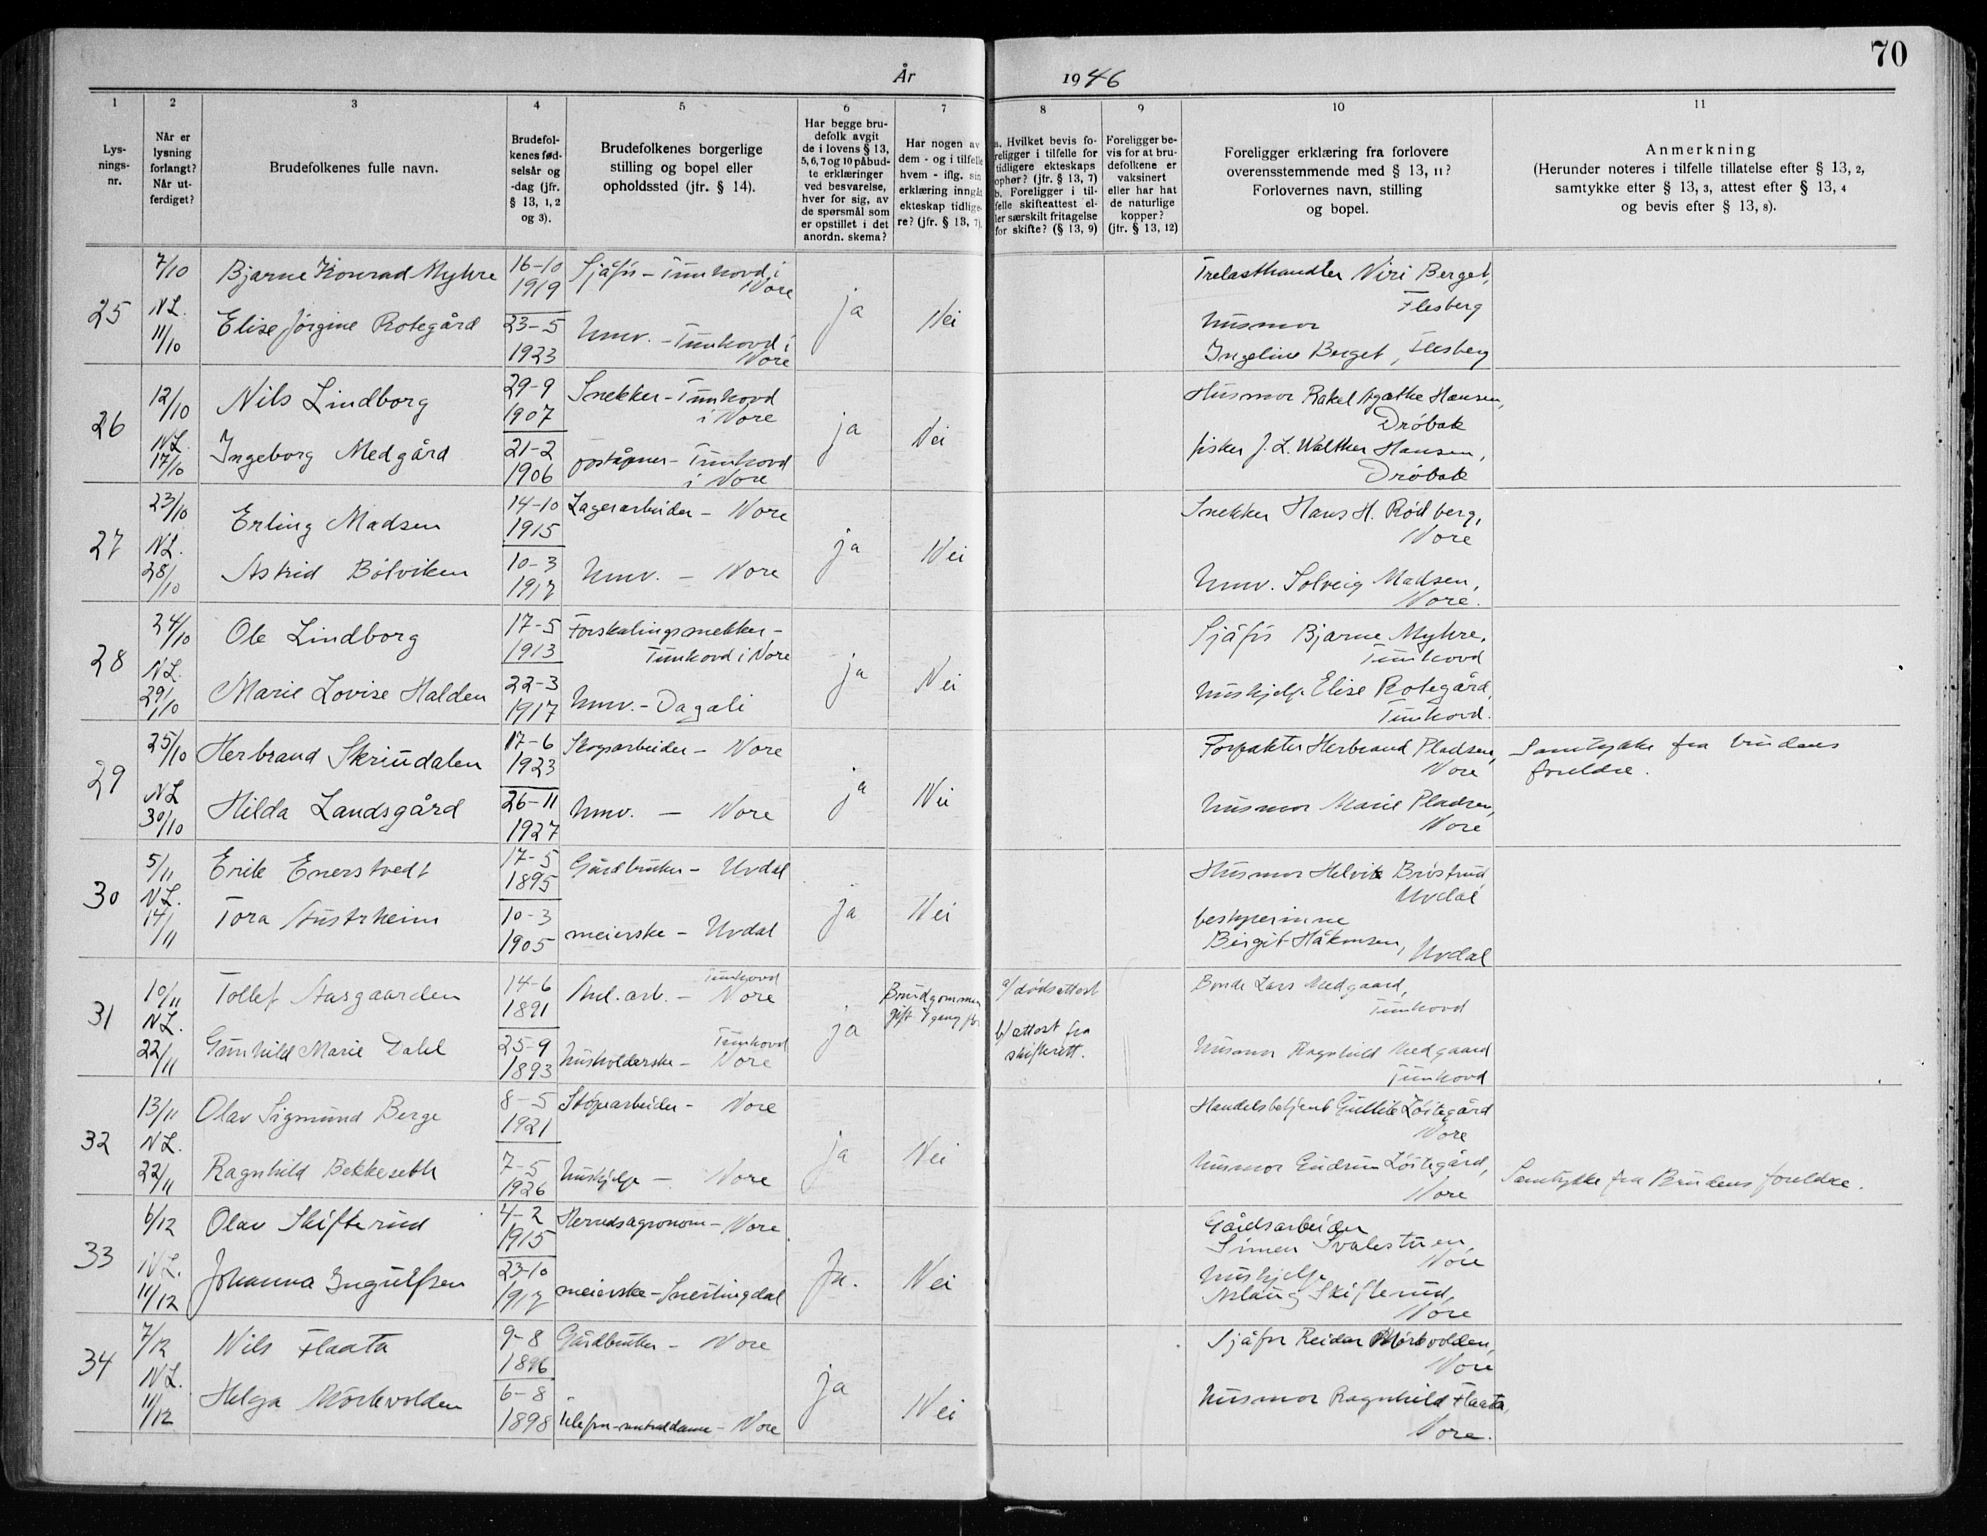 70
År 1946
1 2 3 4 5 6 7 8 9 10 11
Lys-
nings-
nr.
Når er
lysning
forlangt?
Når ut-
ferdiget?
Brudefolkenes fulle navn.
Brudefol-
kenes fød-
selsår og
-dag (jfr.
§ 13, 1, 2
og 3).
Brudefolkenes borgerlige
stilling og bopel eller
opholdssted (jfr. § 14).
Har begge bru-
defolk avgit
de i lovens § 13,
5, 6, 7 og 10 påbud-
te erklæringer
ved besvarelse,
hver for sig, av
de spørsmål som
er opstillet i det
anordn. skema?
Har nogen av
dem - og i tilfelle
hvem - iflg. sin
erklæring inngåt
ekteskap tidlige-
re? (jfr. § 13, 7).
a. Hvilket bevis fo-
religger i tilfelle for
tidligere ekteskaps
ophør? (jfr. § 13, 7)
b. Foreligger i til-
felle skifteattest el-
ler særskilt fritagelse
for skifte? (§ 13, 9)
Foreligger be-
vis for at bru-
defolkene er
vaksinert
eller har hat
de naturlige
kopper?
(jfr. § 13, 12)
Foreligger erklæring fra forlovere
overensstemmende med § 13, 11?
Forlovernes navn, stilling
og bopel.
Anmerkning
(Herunder noteres i tilfelle tillatelse efter § 13, 2,
samtykke efter § 13, 3, attest efter § 13, 4
og bevis efter § 13, 8).
25
7/10
NL
11/10
Bjarne Konrad Myhre
Elise Jørgine Rotegård
16-10
1919
23-5
1923
Sjåfør - Tunhovd i
Nore
Umv. - Tunhovd i
Nore
ja
Nei
Trelasthandler Niri Berget,
Flesberg
Husmor
Ingeline Berget, Flesberg
26
12/10
NL
17/10
Nils Lindborg
Ingeborg Medgård
29-9
1907
21-2
1906
Snekker - Tunhovd
i Nore
Tunhovd
i Nore
ja
Nei
Husmor Rakel Agathe Hansen,
Drøbak
fisker J. L. Walther Hansen,
Drøbak
27
23/10
NL.
28/10
Erling Madsen
Astrid Bølviken
14-10
1915
10-3
1917
Lagerarbeider - Nore
Umv. - Nore
ja
Nei
Snekker Hans H. Rødberg,
Nore
Umv. Solveig Madsen,
Nore.
28
24/10
NL.
29/10
Ole Lindborg
Marie Lovise Halden
17-5
1913
22-3
1917
Forskalingssnekker -
Tunhovd i Nore
Umv. - Dagali
ja
Nei
Sjåfør Bjarne Myhre,
Tunhovd
Hushjelp Elise Rotegård,
Tunhovd.
29
25/10
NL
30/10
Herbrand Skriudalen
Hilda Landsgård
17-6
1923
26-11
1927
Skogsarbeider - Nore
Umv. - Nore
ja
Nei
Forpakter Herbrand Pladsen,
Nore
Husmor Marie Pladsen,
Nore
Samtykke fra brudens
foreldre.
30
5/11
NL.
14/11
Erik Enerstvedt
Tora Austrheim
17-5
1895
10-3
1905
Gårdbruker - Uvdal
meierske - Uvdal
ja
Nei
Husmor Helvik Brøstrud
Uvdal
bestyrerinne
Birgit Håkonsen, Uvdal
31
10/11
NL.
22/11
Tollef Aasgaarden
Gunhild Marie Dahl
14-6
1891
25-9
1893
Tunhovd
Anl. arb. - Nore
Tunhovd
Husholderske - Nore
ja
Brudgommen
gift 1 gang før
a/ dødsattest
b/ attest fra
skifterett.
Bonde Lars Medgaard,
Tunhovd
Husmor Ragnhild Medgaard
Tunhovd
32
13/11
NL.
22/11
Olav Sigmund Berge
Ragnhild Bekkeseth
8-5
1921
7-5
1926
Støpearbeider - Nore
Hushjelp - Nore
ja
Nei
Handelsbetjent Gullik Løitegård
Nore
Husmor Gudrun Løitegård,
Nore
Samtykke fra Brudens foreldre.
33
6/12
NL.
11/12
Olav Skifterud
Johanna Ingulfsen
4-2
1915
23-10
1917
Herredsagronom - Nore
meierske - Snertingdal
Ja.
Nei
Gårdsarbeider
Simen Svalestuen,
Nore
Hushjelp
Aslaug Skifterud,
Nore
34
7/12
NL.
11/12
Nils Flaata
Helga Mørkvolden
9-8
1896
6-8
1898
Gårdbruker - Nore
telefon-sentraldame - Nore
ja
Nei
Sjåfør Reidar Mørkvolden,
Nore
Husmor Ragnhild Flaata,
Nore.